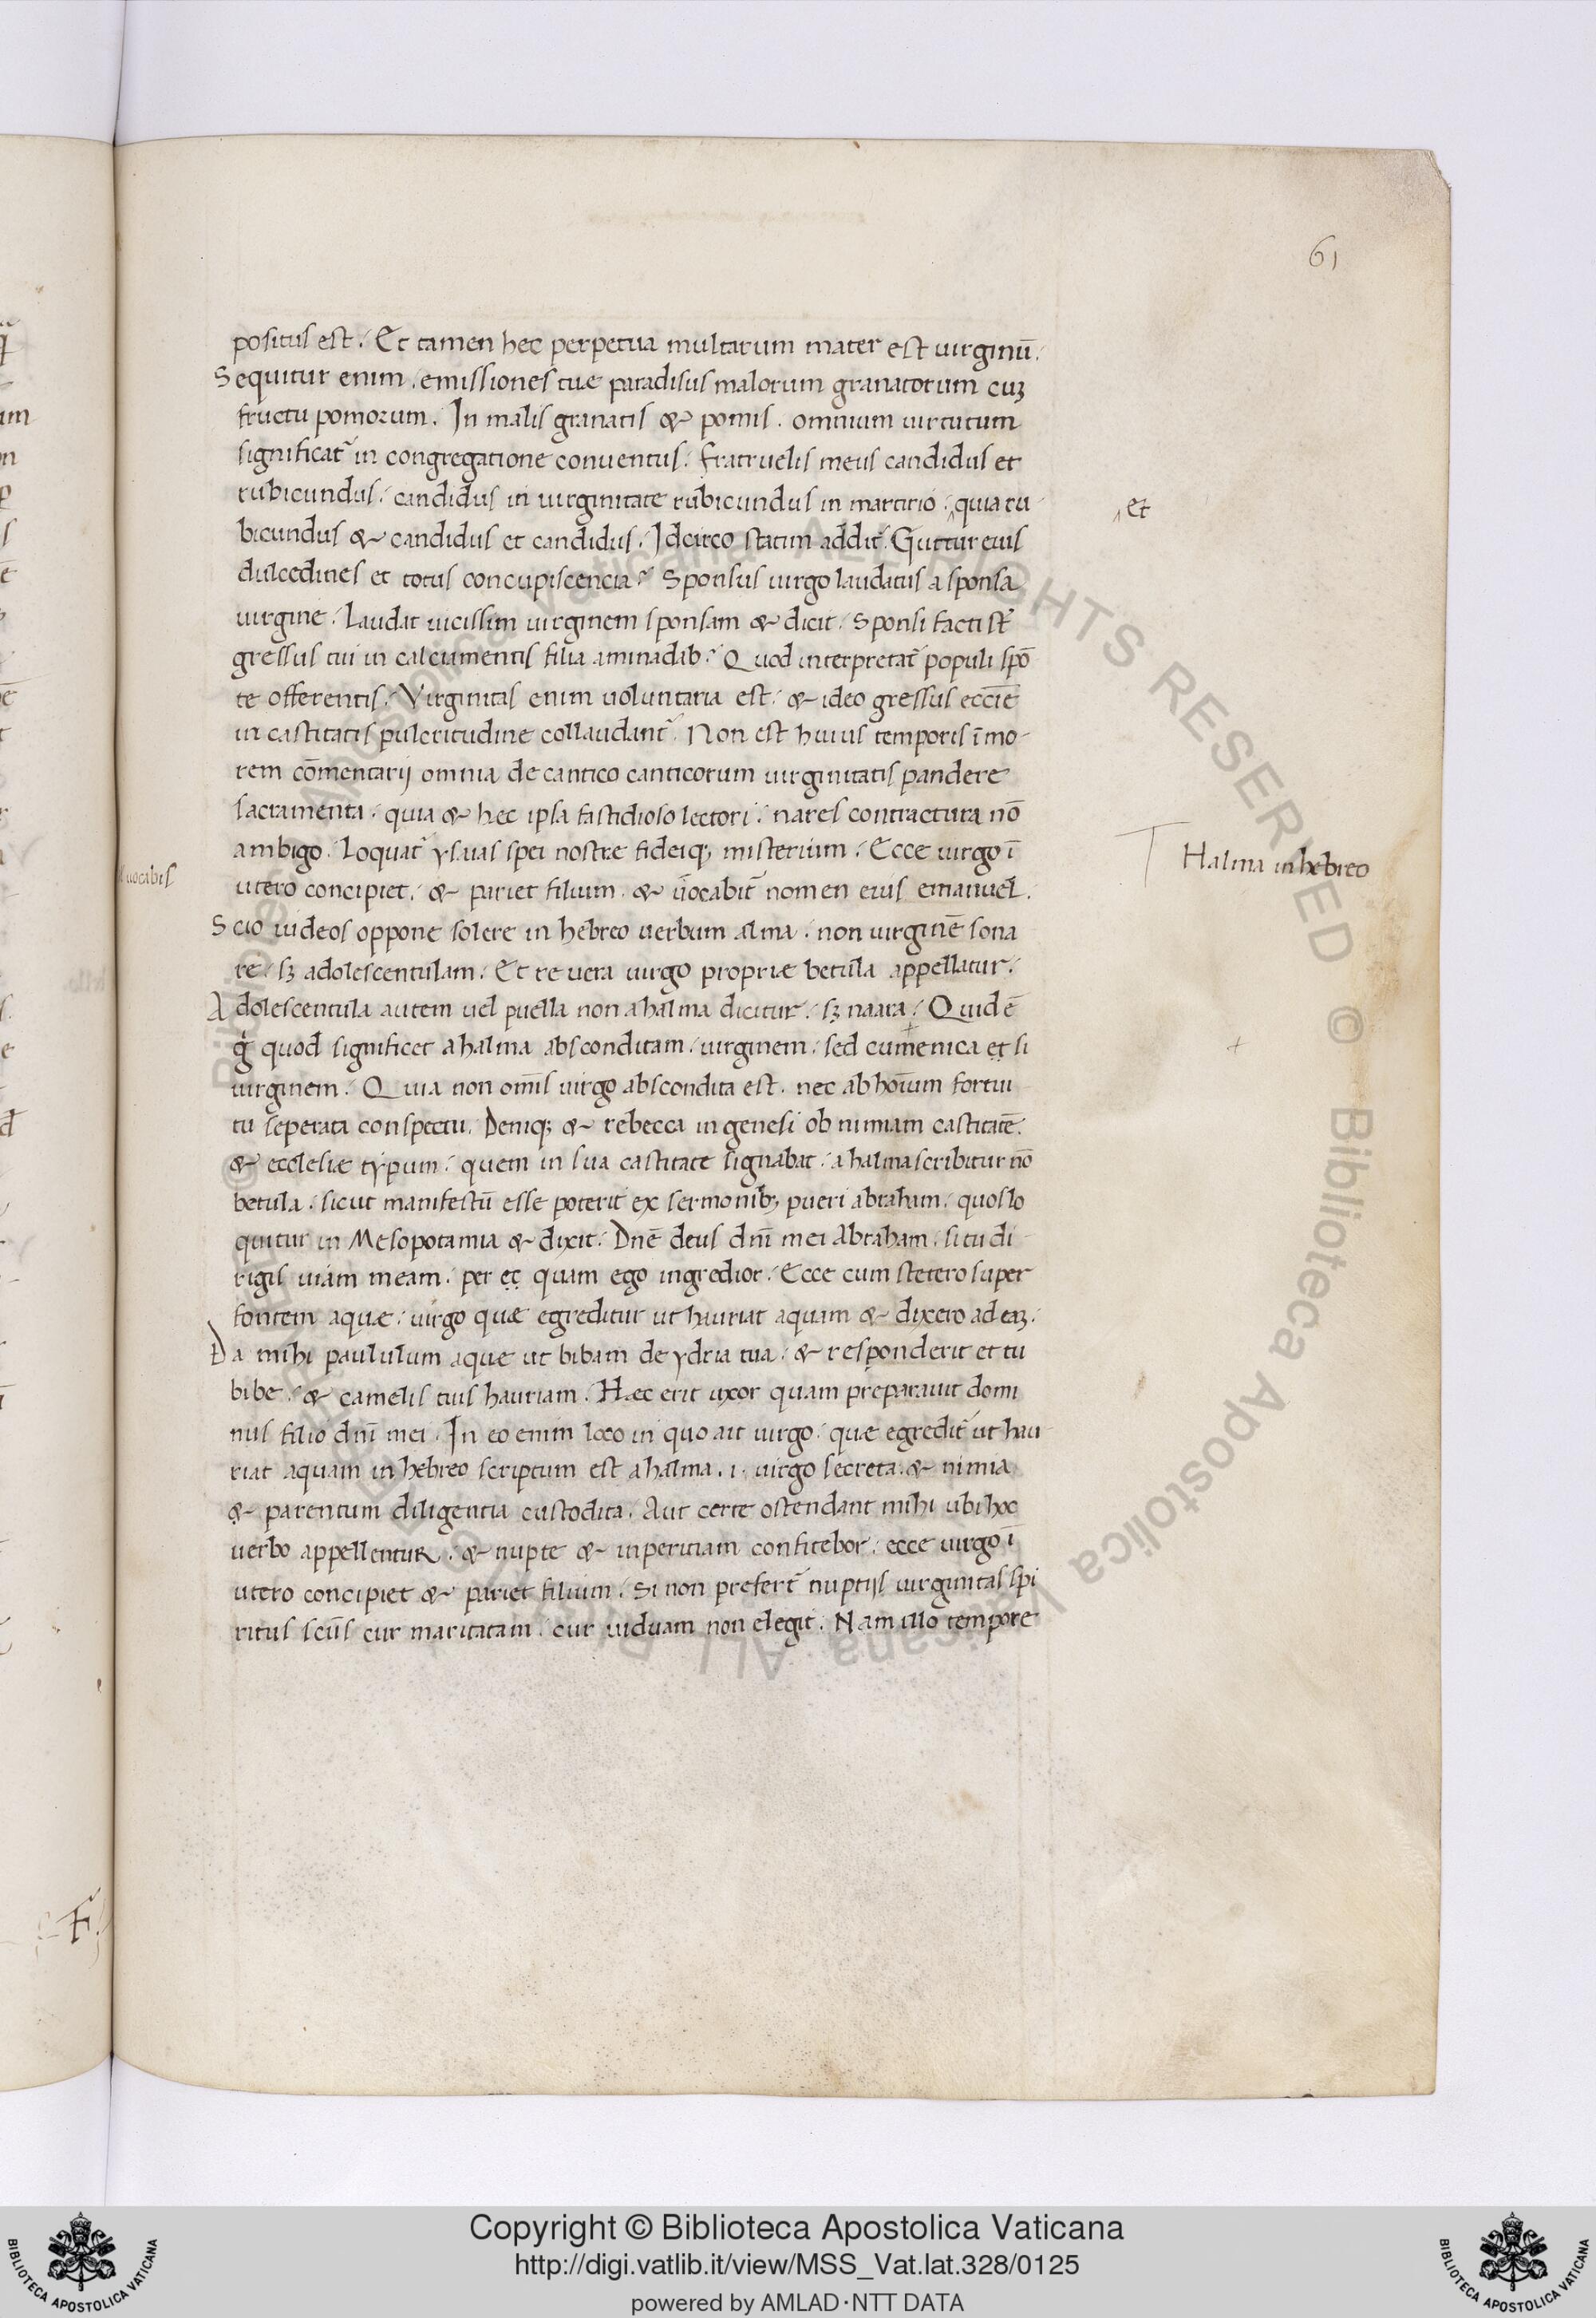 61
positus est. Et tamen hec perpetua multarum mater est uirginū.
Sequitur enim. emissiones tue paradisus malorum granatorum cuꝫ
fructu pomorum. In malis granatis & pomis. omnium uirtutum
significat᷑ in congregatione conuentus. fratruelis meus candidus et
rubicundus. candidus in uirginitate rubicundus in martirio. ‸quia ru
‸et
bicundus & candidus et candidus. Idcirco statim addit᷑. Guttur eius
dulcedines et totus concupiscencia. Sponsus uirgo laudatus a sponsa
uirgine. Laudat uicissim uirginem sponsam & dicit. Sponsi facti st̄
gressus tui in calciamentis filia aminadab. Quod interpretat᷑ populi spō
te offerentis. Virginitas enim uoluntaria est. & ideo gressus ecc̄ie
in castitatis pulcritudine collaudant᷑. Non est huius temporis ī mo-
rem cōmentarij omnia de cantico canticorum uirginitatis pandere
sacramenta. quia & hec ipsa fastidioso lectori. nares contractura nō
ambigo. Loquat᷑ ysaias spei nostre fideiqꝫ misterium. Ecce uirgo ī
Halma in hebreo
uocabis
utero concipiet. & pariet filium. & uocabit᷑ nomen eius emanuel.
Scio iudeos oppone solere in hebreo uerbum alma. non uirginē sona
re. sꝫ adolescentulam. Et re uera uirgo propriæ betula appellatur.
Adolescentula autem uel puella non ahalma dicitur. sꝫ naara. Quid ē
g̊ quod significet ahalma absconditam. uirginem. sed cumenica et si
+
uirginem. Quia non om̄is uirgo abscondita est. nec ab hoīum fortui
tu seperata conspectu. Deniqꝫ & rebecca in genesi ob nimiam castitatē.
& ecclesiæ typum. quem in sua castitate signabat. ahalma scribitur nō
betula. sicut manifestū esse poterit ex sermonibꝫ pueri abraham. quos lo
quitur in Mesopotamia & dixit. Dn̄e deus dn̄i mei Abraham. si tu di
rigis uiam meam. per eç quam ego ingredior. Ecce cum stetero super
fontem aquæ. uirgo quæ egreditur ut hauriat aquam & dixero ad eaꝫ.
Da mihi paululum aque ut bibam de ydria tua. & responderit et tu
bibe. & camelis tuis hauriam. Hæc erit uxor quam preparauit domi
nus filio dn̄i mei. In eo enim loco in quo ait uirgo. quæ egredit᷑ ut hau
riat aquam in hebreo scriptum est ahalma. i. uirgo secreta. & nimia
& parentum diligentia custodita. Aut certe ostendant mihi ubi hoc
uerbo appellentur. & nupte & inperitiam confitebor. ecce uirgo ī
utero concipiet & pariet filium. Si non prefert᷑ nuptijs uirginitas spi
ritus scūs cur maritatam. cur uiduam non elegit. Nam illo tempore
Copyright © Biblioteca Apostolica Vaticana
http://digi.vatlib.it/view/MSS_Vat.lat.328/0125
powered by AMLAD·NTT DATA